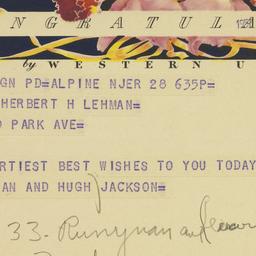 NGRATULA
by WESTERN U
GN PD=ALPINE NJER 28 635P=
HERBERT H LEHMAN=
PARK AVE=
RTIEST BEST WISHES TO YOU TODAY
AN AND HUGH JACKSON=
33- Runyman and